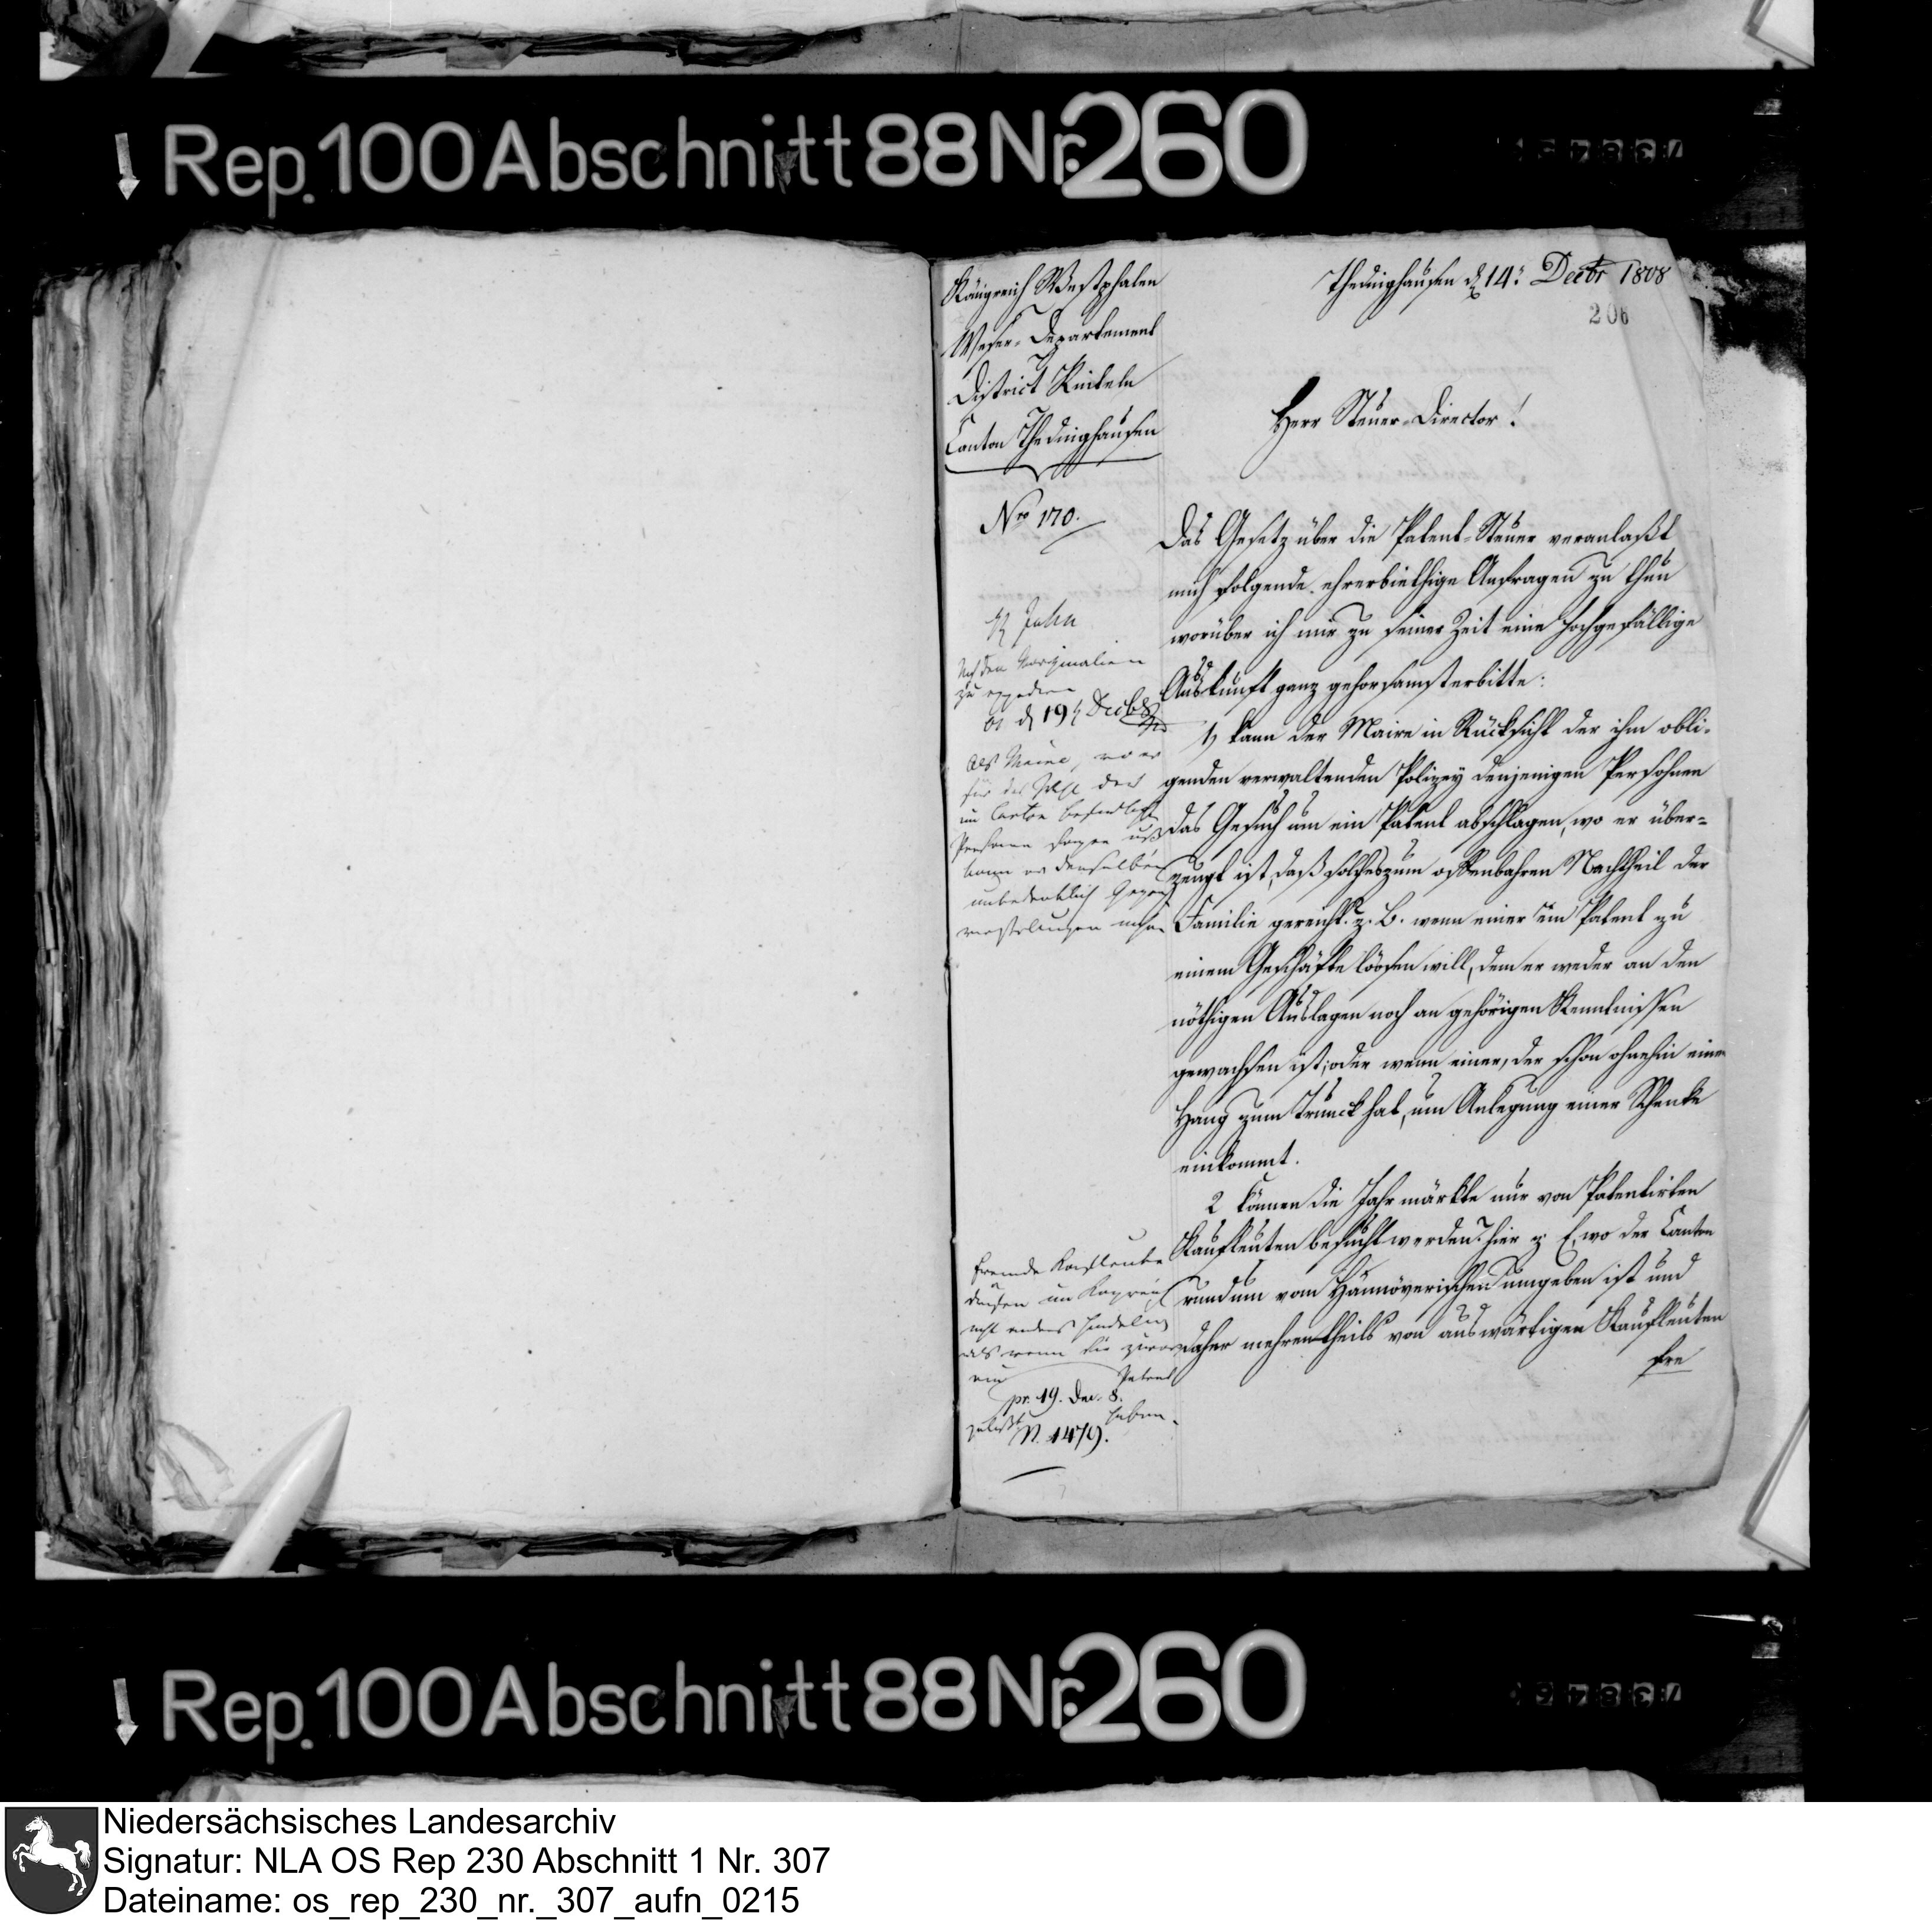 Rep. 100 Abschnitt 88 Nr. 260
Königreich Westphalen
Weser-Departement
District Rinteln
Canton Thedinghausen
Nro 170.
Thedinghausen d 14t Decbr 1808
206
Herr Steuer-Director!
Das Gesetz über die Patent-Steuer veranlaßt
mich folgende ehrerbiethige Anfragen zu thun
worüber ich mir zu seiner Zeit eine hochgefällige
Auskunft ganz gehorsamst erbitte:
1, kann der Maire in Rücksicht der ihm obli-
genden verwaltenden Polizey denjenigen Persohnen
das Gesuch um ein Patent abschlagen, wo er über-
zeugt ist, daß solches zum offenbahren Nachtheil der
Familie gereicht? z. B. wenn einer ein Patent zu
einem Geschäfte löosen will, dem er weder an den
nöthigen Auslagen noch an gehörigen Kenntnissen
gewachsen ist; oder wenn einer, der schon ohnehin einen
Hang zum Trunck hat, um Anlegung einer Schenke
einkommt.
2 können die Jahrmärkte nur von Patentirten
Kaufleuten besucht werden? hier z. E, wo der Canton
rund um vom Hannöverischen umgeben ist und
daher mehrentheils von auswärtigen Kaufleuten
fre
zu
d 19 Decbr
Als Maire, wo er
für das der
im Canton
Personen sorgen muß
kann er denselben
unbedenklich Gegen
vorstellungen machen
Fremde Kaufleute
dürfen im Königreich
nicht anders handeln
als wenn sie zuvor
ein Patent
pr. 19. Dec. 8.
gelößt haben.
N. 1479.
Rep. 100 Abschnitt 88 Nr. 260
Niedersächsisches Landesarchiv
Signatur: NLA OS Rep 230 Abschnitt 1 Nr. 307
Dateiname: os_rep_230_nr._307_aufn_0215